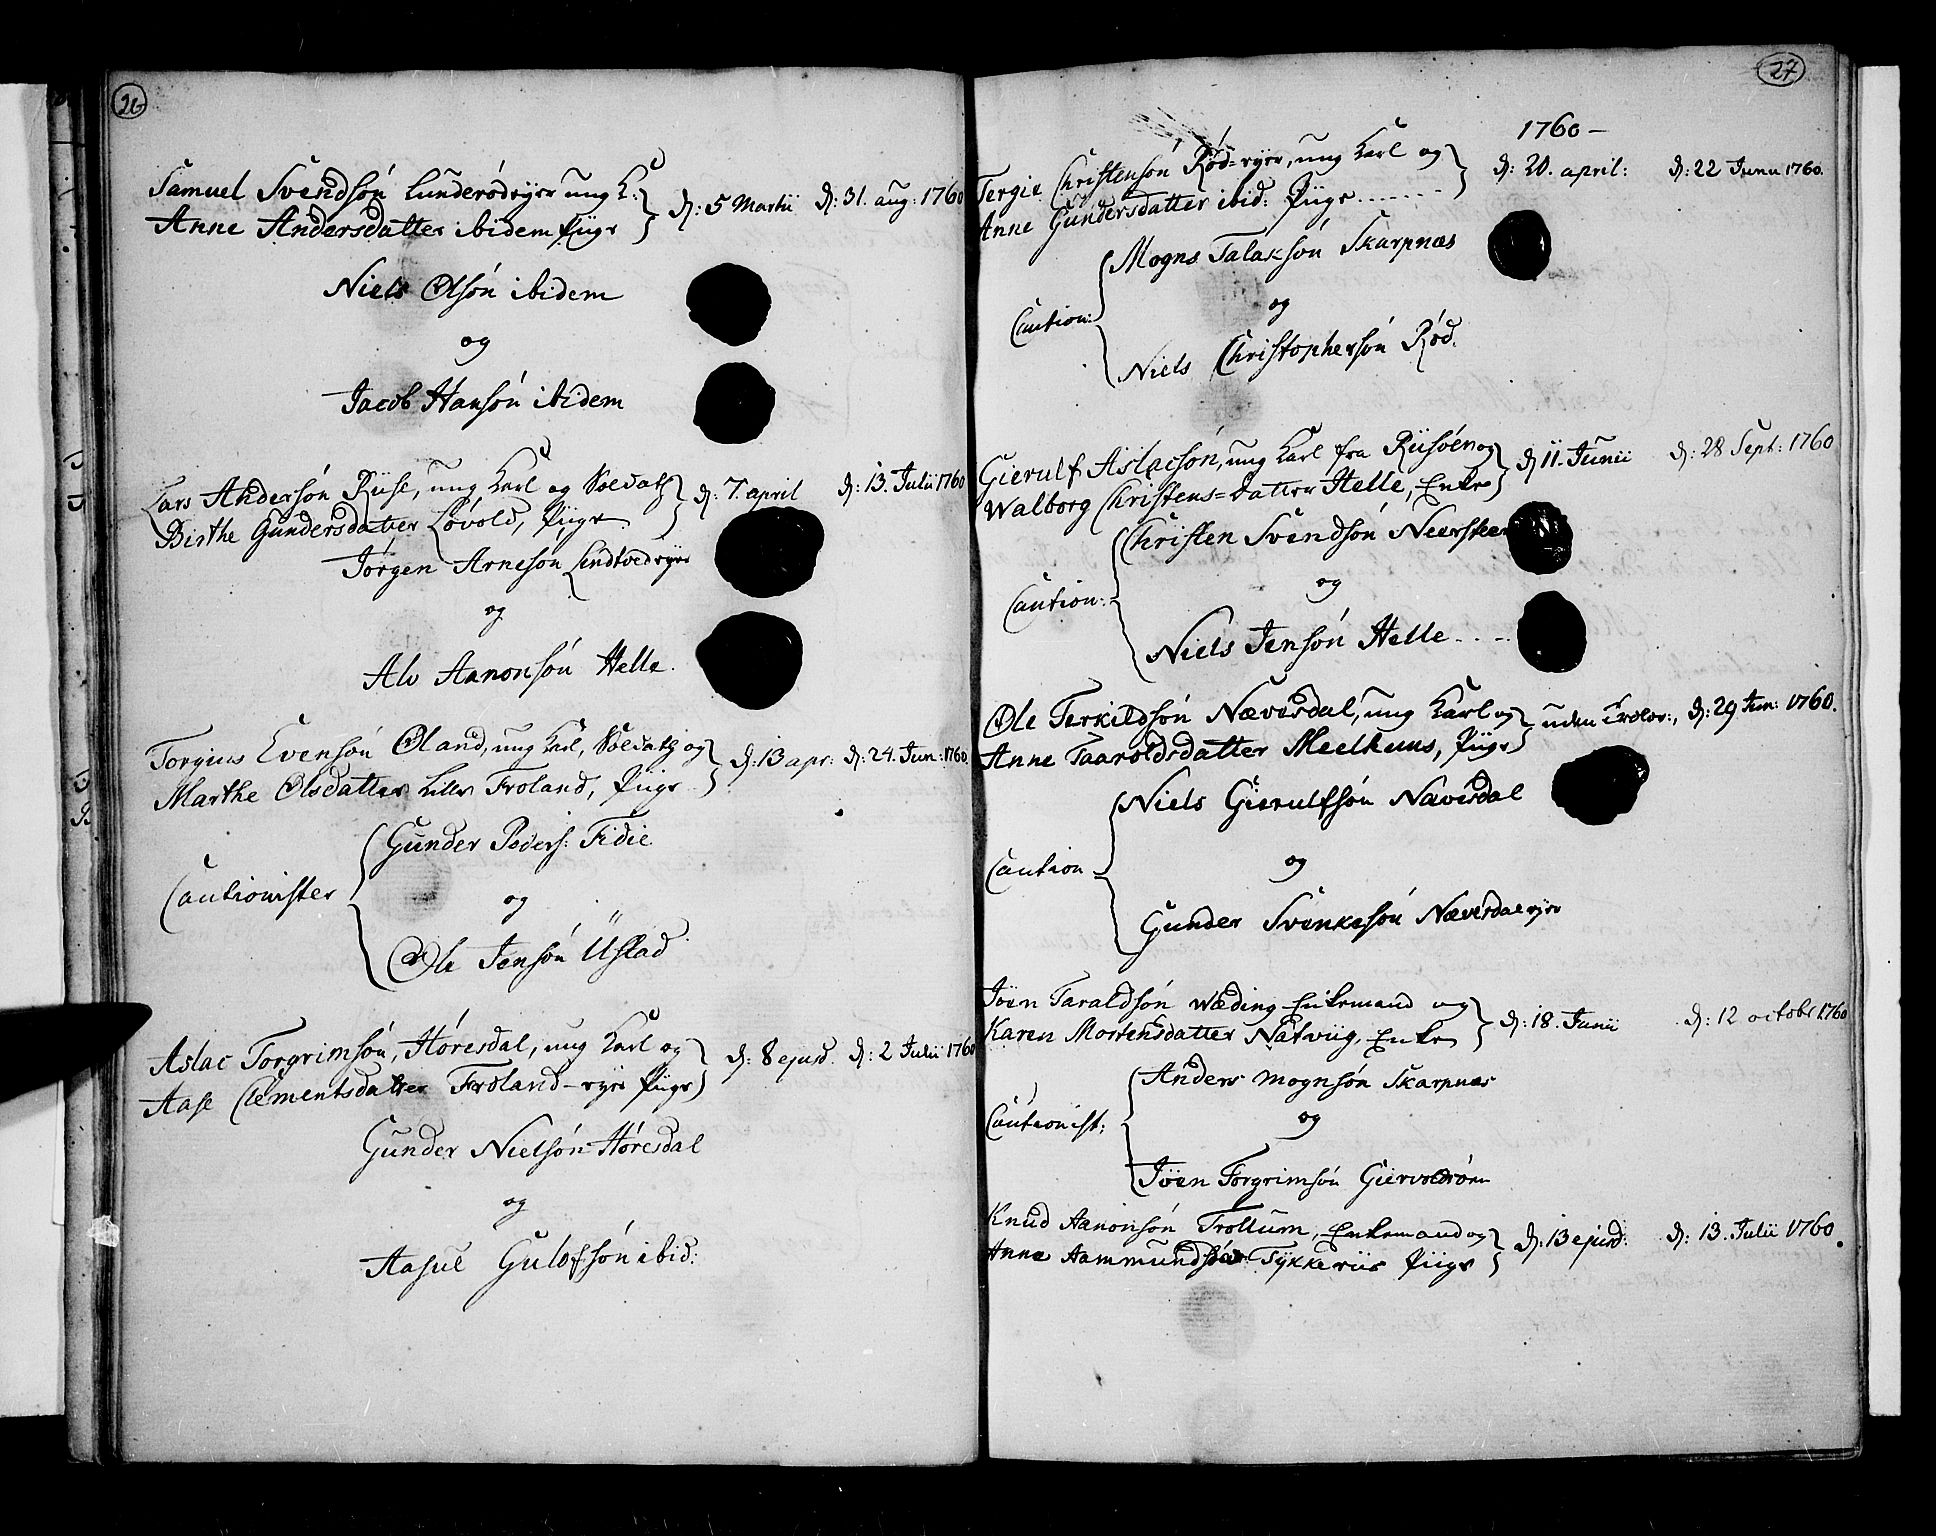 26
Samuel Svendsøn Lunderødeyer ung K:
Anne Andersdatter ibidem Piige
d: 5 Martii d: 31. aug: 1760
Niels Olsøn ibidem
og
Jacob Hansøn ibidem
Lars Andersøn Riise, ung Karl og Soldat
Birthe Gundersdatter Løvold, Piige
d: 7. april d: 13. Julii 1760
Jørgen Arnesøn Lindtvedeyer
og
Alv Aanonsøn Helle.
Torgius Evensøn Øland, ung Karl, Soldat og
Marthe Olsdatter Lille Froland, Piige
d: 13 apr: d: 24. Jun: 1760.
Gunder Peders: Fidie
Cautionister
og
Ole Jensøn Ustad
Aslac Torgrimsøn, Høresdal, ung Karl og
Aase Clementsdatter Froland-eyer Piige
d: 8 ejusd. d: 2 Julii 1760
Gunder Nielsøn Høresdal
og
Aasul Gulofsøn ibid:
27
1760 –
Tergie Christensøn Rød-eyer, ung Karl og
Anne Gundersdatter ibid: Piige
d: 20. april: d: 22 Junii 1760.
Mogns Talaksøn Skarpnæs
Caution:
og
Niels Christophersøn Rød.
Gierulf Aslacsøn, ung Karl fra Riisøen og
Walborg Christens=datter Helle, Enke
d: 11. Junii d: 28 Sept: 1760
Christen Svendsøn Neerskeer
Caution:
og
Niels Jensøn Helle
Ole Terkildsøn Næversdal, ung Karl og
Anne Taaroldsdatter Meelhuus, Piige
uden Trolov:, d: 29 Jun: 1760.
Niels Gierulfsøn Næversdal
Caution
og
Gunder Svenkesøn Næversdaleyer
Jøen Taraldsøn Wæding Enkemand og
Karen Mortensdatter Natviig, Enke
d: 18. Junii d: 12 octobr 1760
Anders Mognsøn Skarpnæs
Cautionist:
og
Jøen Torgrimsøn
Knud Aanonsøn Trollum, Enkemand og
Anne Aammunds Tykkeriis Piige
d: 13 ejusd: d: 13. Julii 1760.